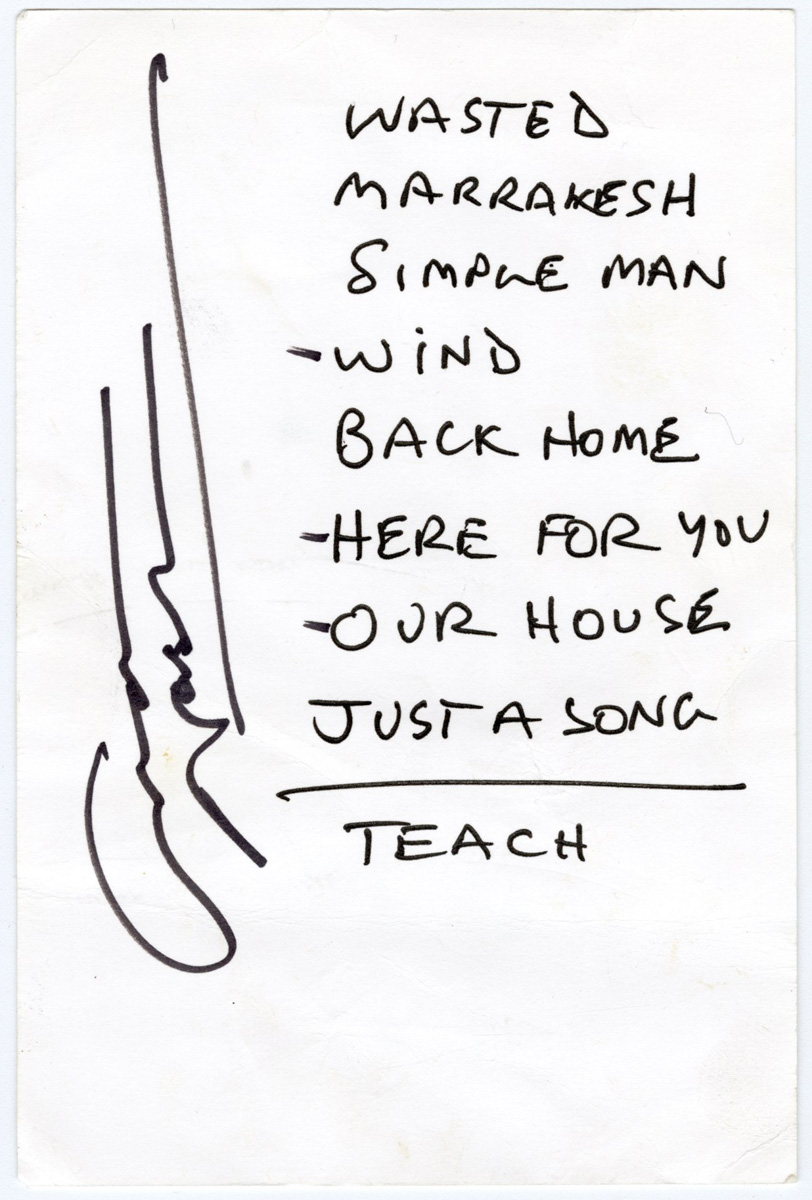 WASTED
MARRAKESH
SIMPLE MAN
-WIND
BACK HOME
-HERE FOR YOU
-OUR HOUSE
JUST A SONG
TEACH